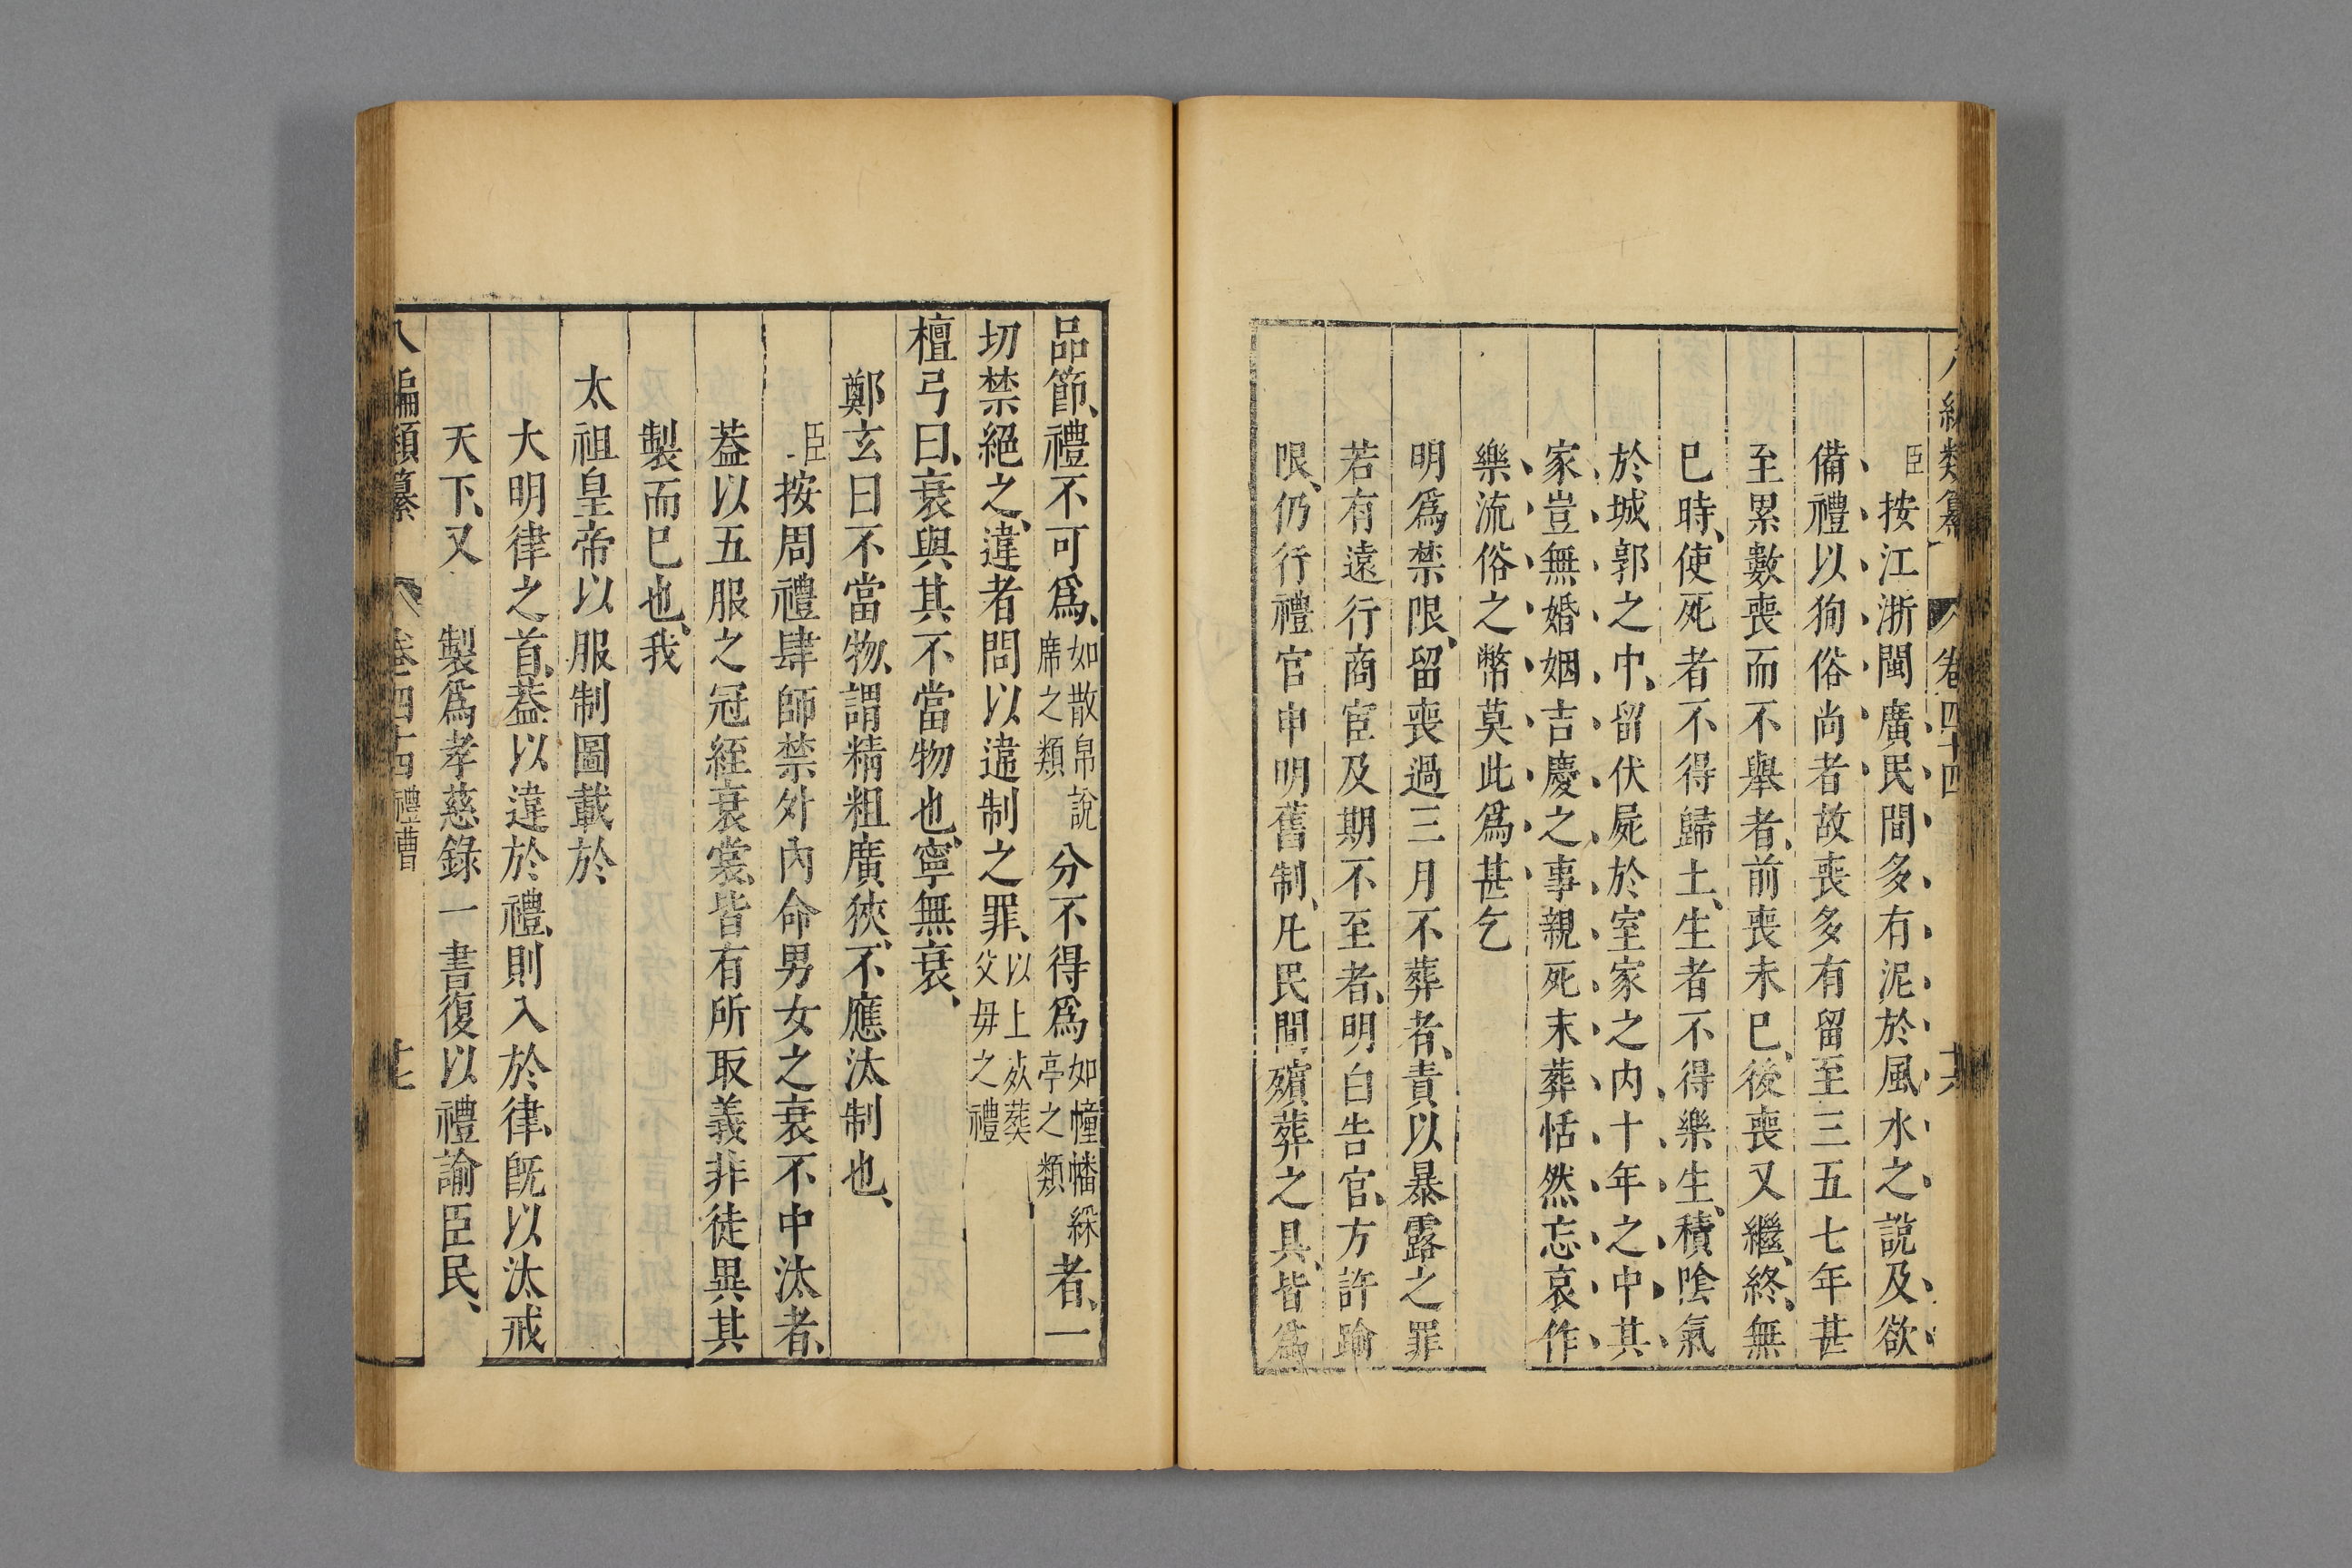 八編類纂 卷四十四 十六
臣按江浙閩廣民間多有泥於風水之說及欲
備禮以狥俗尚者故喪多有留至三五七年甚
至累數喪而不舉者、前喪未巳、後喪又繼、終、無
巳時、使死者不得歸土、生者不得樂生、積陰氣
於城郭之中、留伏屍於室家之内十年之中其
家豈無婚姻吉慶之事親死未葬恬然忘哀作
樂流俗之幣莫此爲甚乞
明爲禁限、留喪過三月不葬者、責以暴露之罪
若有遠行商宦及期不至者、明白告官、方許踰
限、仍行禮官申明舊制、凡民間殯葬之具、皆爲
品節、禮不可爲、如散帛說席之類分不得爲如幢幡綵亭之類者、一
切禁絕之、違者問以違制之罪、以上𠫵葬父毋之禮
檀弓曰、衰與其不當物也、寧無衰、
鄭玄曰不當物、謂精粗廣狹、不應汰制也、
臣按周禮肆師禁外内命男女之衰不中汰者、
葢以五服之冠絰衰裳、皆有所取義非徒異其
製而巳也、我
太祖皇帝以服制圖載於
大明律之首、葢以違於禮、則入於律、旣以汰戒
天下、又 製爲孝慈錄一書復以禮諭臣民、
八編類纂 卷四十四 禮曹 十七